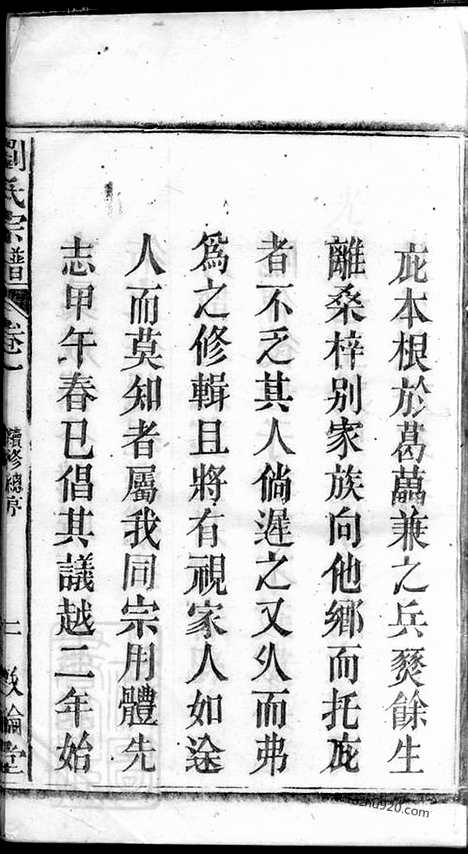 庇本根於葛藟兼之兵燹餘生
離桑梓別家族向他鄉而托庇
者不乏其人倘遲之又久而弗
爲之修輯且將有視家人如途
人而莫知者屬我同宗用體先
志甲午春已倡其議越二年始
劉氏宗譜
卷一
續修總序
二
敦倫堂